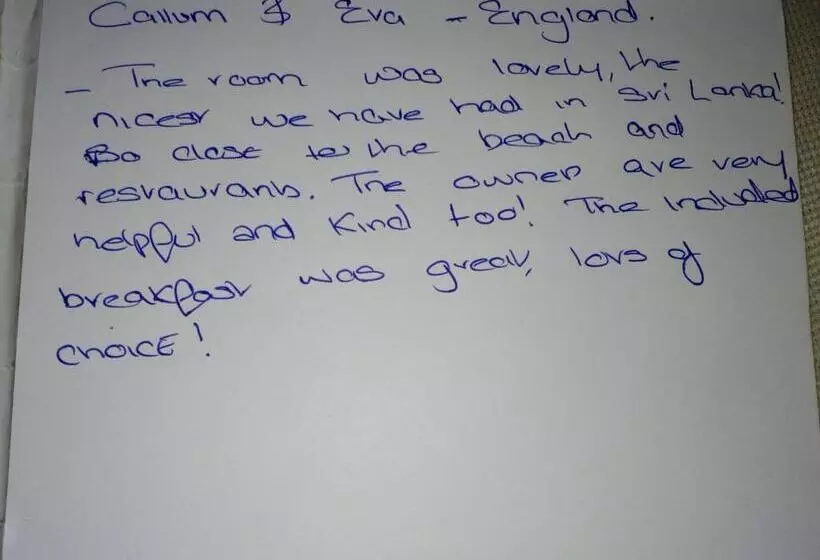 Callum & Eva - England.
- The room was lovely, the
nicest we have had in Sri Lanka!
So close to the beach and
restaurants. The owner are very
helpful and kind too! The included
breakfast was great, lots of
choice!